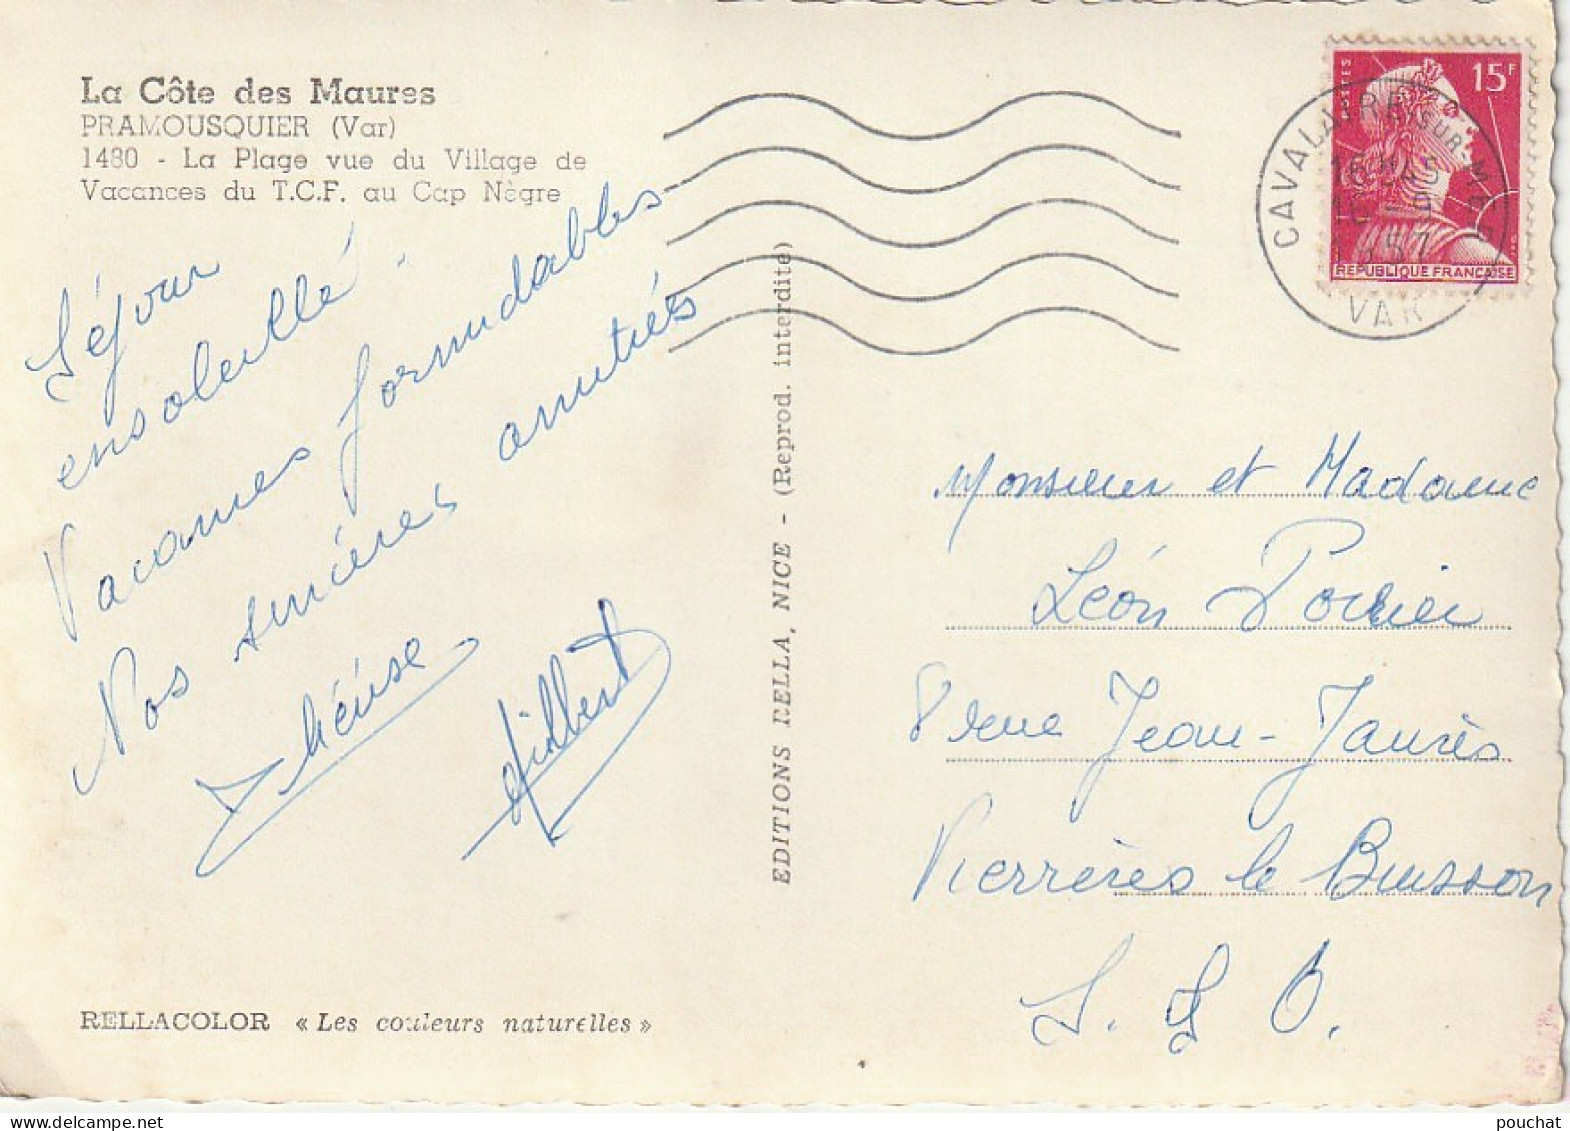 La Côte des Maures
PRAMOUSQUIER (Var)
1480 - La Plage vue du Village de
Vacances du T.C.F. au Cap Nègre
Séjour
ensoleillé.
Vacances formidables
Nos sincères amitiés
Gilbert
RELLACOLOR « Les couleurs naturelles »
EDITIONS RELLA, NICE - (Reprod. interdite)
POSTES
15F
REPUBLIQUE FRANCAISE
CAVALAIRE-SUR-MER
1957
VAR
Monsieur et Madame
Léon Poirier
8 rue Jean-Jaurès
Verrières le Buisson
S. &O.
pouchat